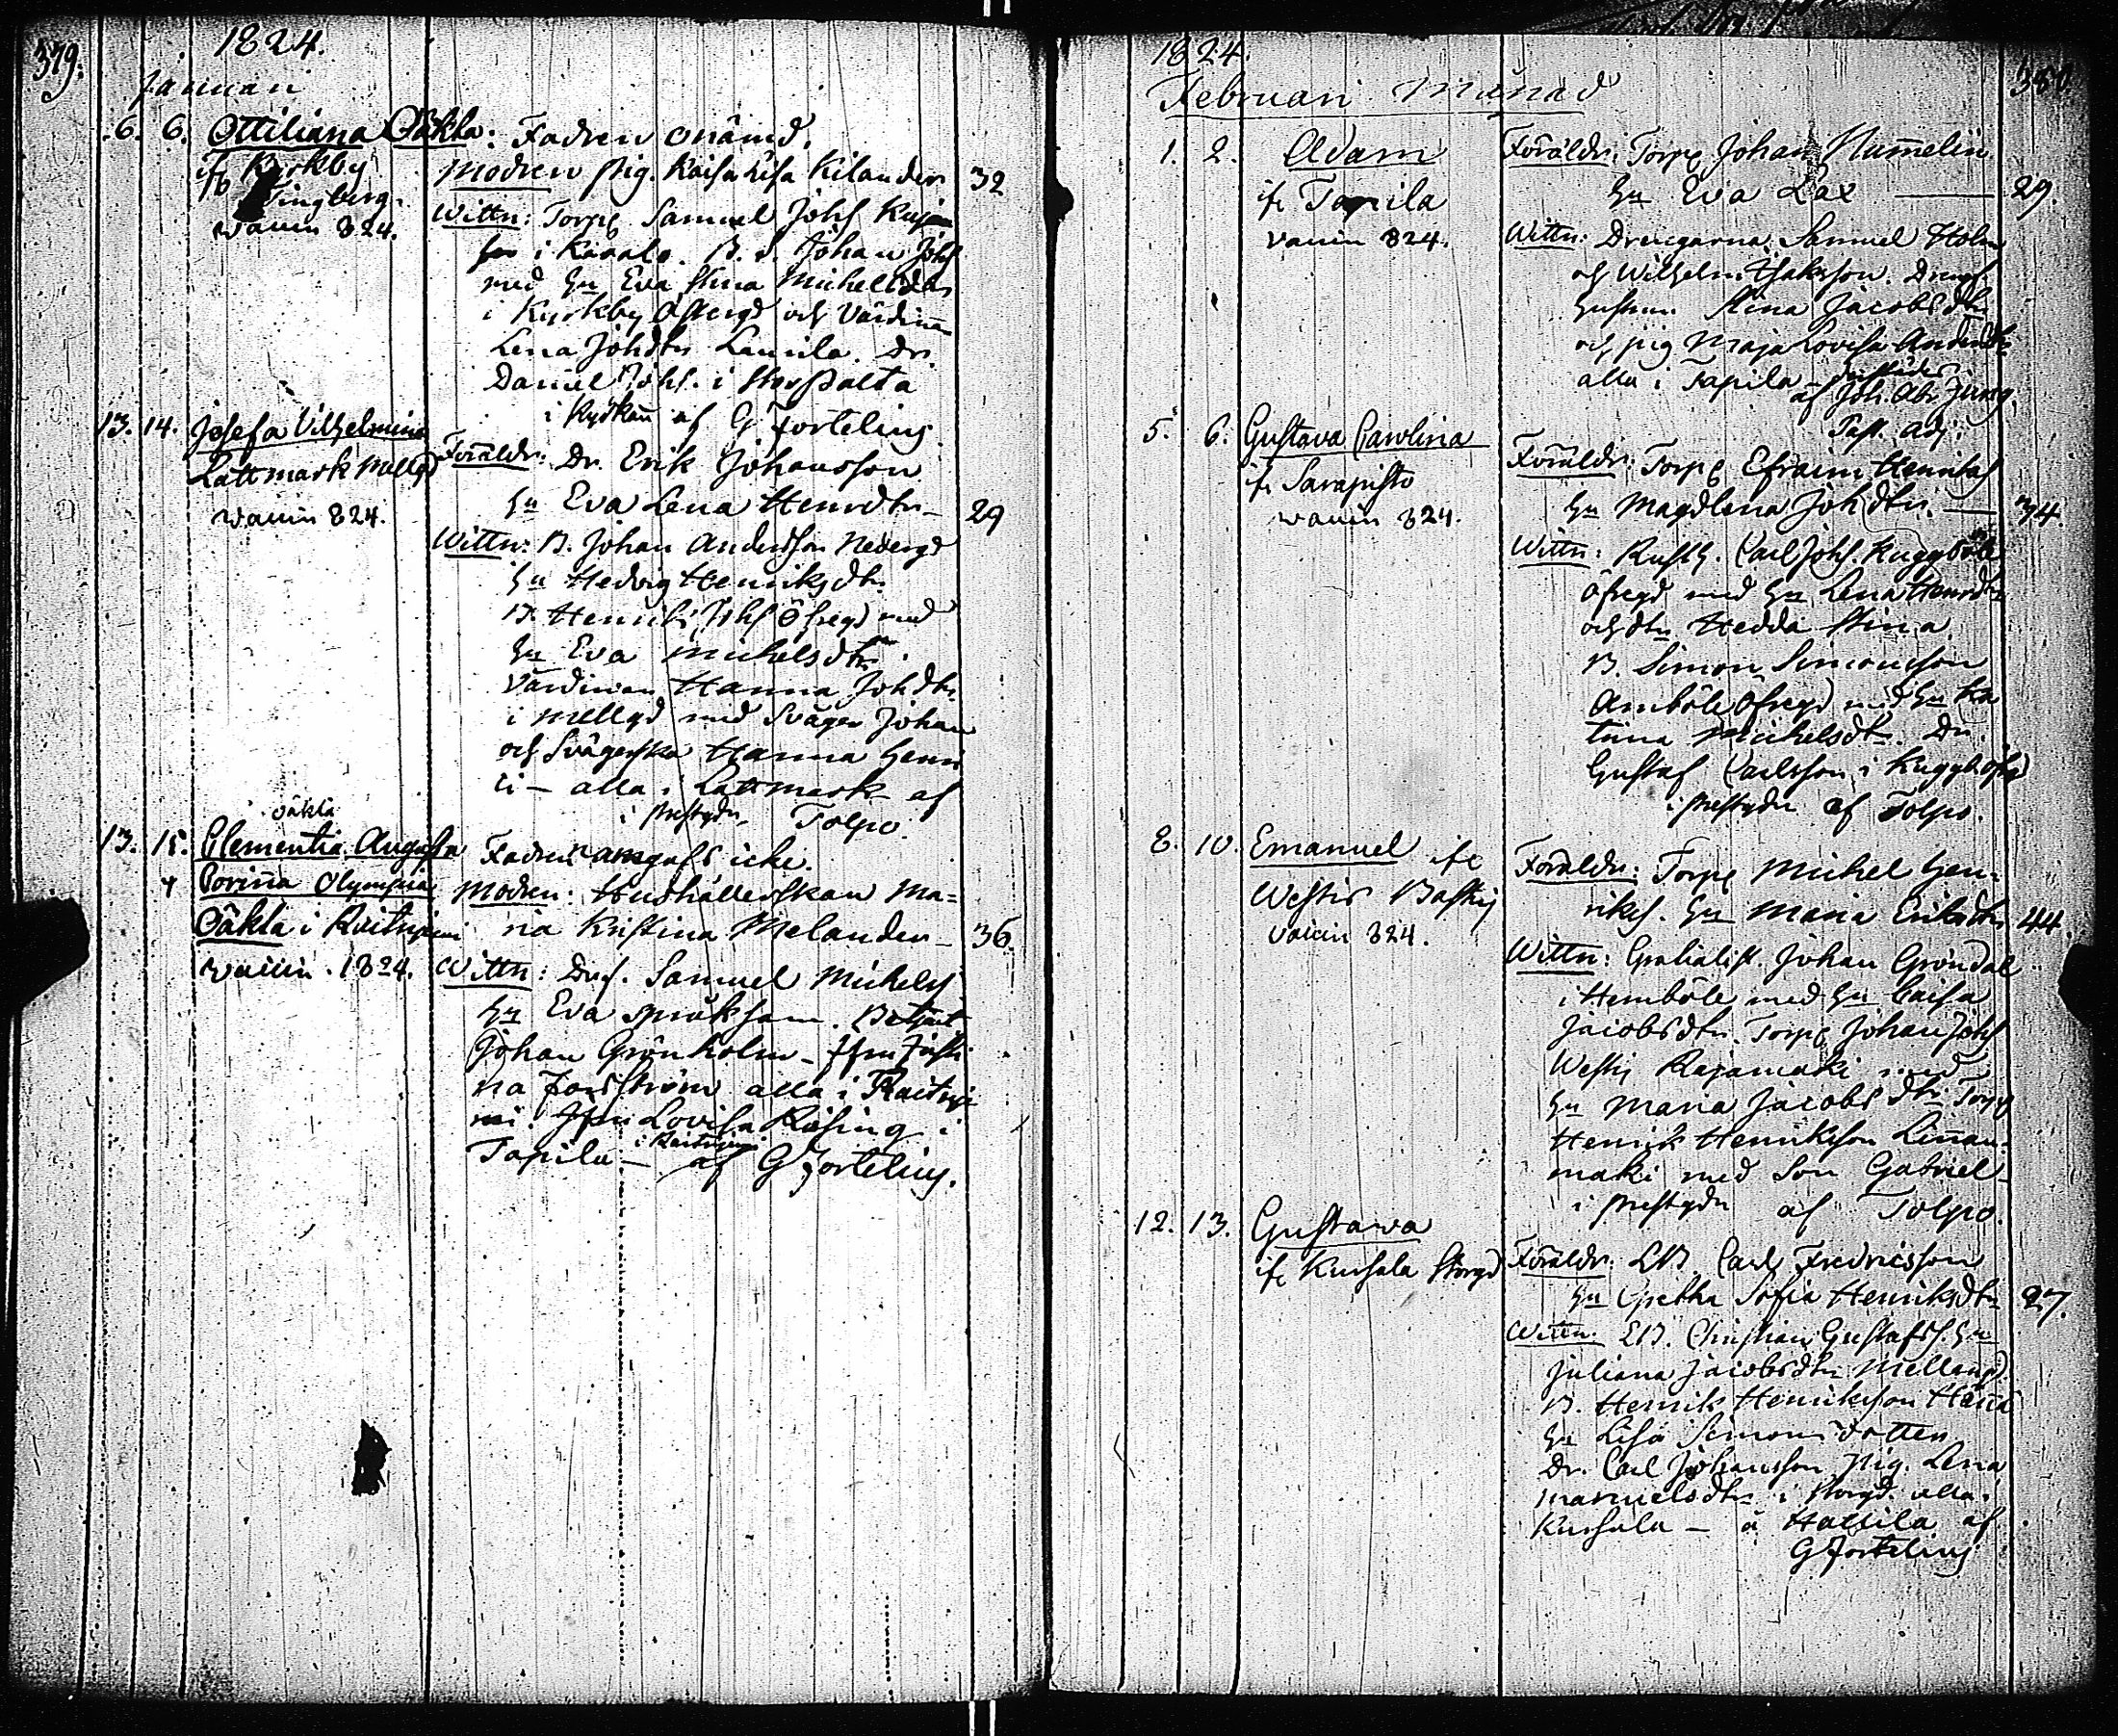 379.
1824.
Januari
6. 6. Ottiliana Oäkta:
ifr Kyrkby
Tingberg.
vaccin 824.
Fadren onämd.
Modren pig. Kaisa Lisa Kilander 32
Wittn: Torp Samuel Johs
i B. s. Johan Johs
med Hu Eva Stina Michelsdtr
i Kyrkby och Värdinn
Lena Johdtr Laurila. Dr
Daniel Johs. i
i Kyrkan af G Forteling.
13. 14. Josefa Vilhelmina
Lattmark Mellgd
vaccin 824.
Föräldr: Dr. Erik Johansson
Hu Eva Lena Henrdtr- 29
Wittn: B. Johan Andersson Nedergd
Hu Hedvig Henriksdtr.
B. Henrik Johs Öfregd med
Hu Eva Michelsdtr.
Värdinnan Hanna Johdtr.
i Mellgd med Svåger Johan
och Svägerska Hanna Henri
ci - alla i Lattmark af
i prestgdn Tolpo.
oäkta
13. 15. Clementia Augusta
Corinna Olympia
Oäkta i
vaccin. 1824.
Fadren icke.
Modren: Hushållerskan Ma=
ria Kristina Melander- 36.
Wittn: Samuel Michels
Hu Eva Betjent
Johan Grönholm -
na Forsström alla i
Lovisa Rising i
Tapila - af G Forteling.
1824.
Februari Månad
380
1. 2. Adam
ifr Tapila
vaccin 824.
Föräldr: Torp Johan Hummelin
Hu Eva Lax - 29.
Wittn: Drengarna Samuel Holm
och Wilhelm Isaksson. Drengs
hustrun Stina Jacobsdtr
och pig Maja Lovisa Andersdtr
alla i Tapila -
af Joh. Abr Jung.
Past. adj.
5. 6. Gustava Carolina
ifr Sarapisto
vaccin 824.
Föräldr: Torp Efraim Henriks
Hu Magdlena Johdtr. - 34.
Wittn: Rusth. Carl Johs. Kuggböle
öfregd med Hu Lena Henrdtr
och dtr Hedda Stina.
B. Simon Simonsson
Amböle Öfregd med Hu Ka
trina Michelsdtr. Dr.
Gustaf Carlsson i
i prestgdn af Tolpo.
8. 10. Emanuel ifr
Westis
vaccin 824.
Föräldr: Torp Michel Hen=
riks. Hu Maria Eriksdtr 44.
Wittn: Gratialist. Johan Gröndal
i Hemböle med Hu Caisa
Jacobsdtr. Torp Johan Johs
Rajamäki med
Hu Maria Jacobsdtr Torp
Henrik Henriksson Linnan=
mäki med Son Gabriel-
i prestgdn af Tolpo.
12. 13. Gustava
ifr Kursala Storgd
Föräldr: LB. Carl Fredricsson
Hu Gretha Sofia Henriksdtr 27.
Wittn: LB. Christian Gustafss. Hu
Juliana Jacobsdtr Mellangd.
B. Henrik Henriksson
Hu Lisa Simonsdotter
Dr. Carl Johansson Pig. Lena
Manuelsdtr i Storgd. alla i
Kursala - å Hallila af
G Forteling